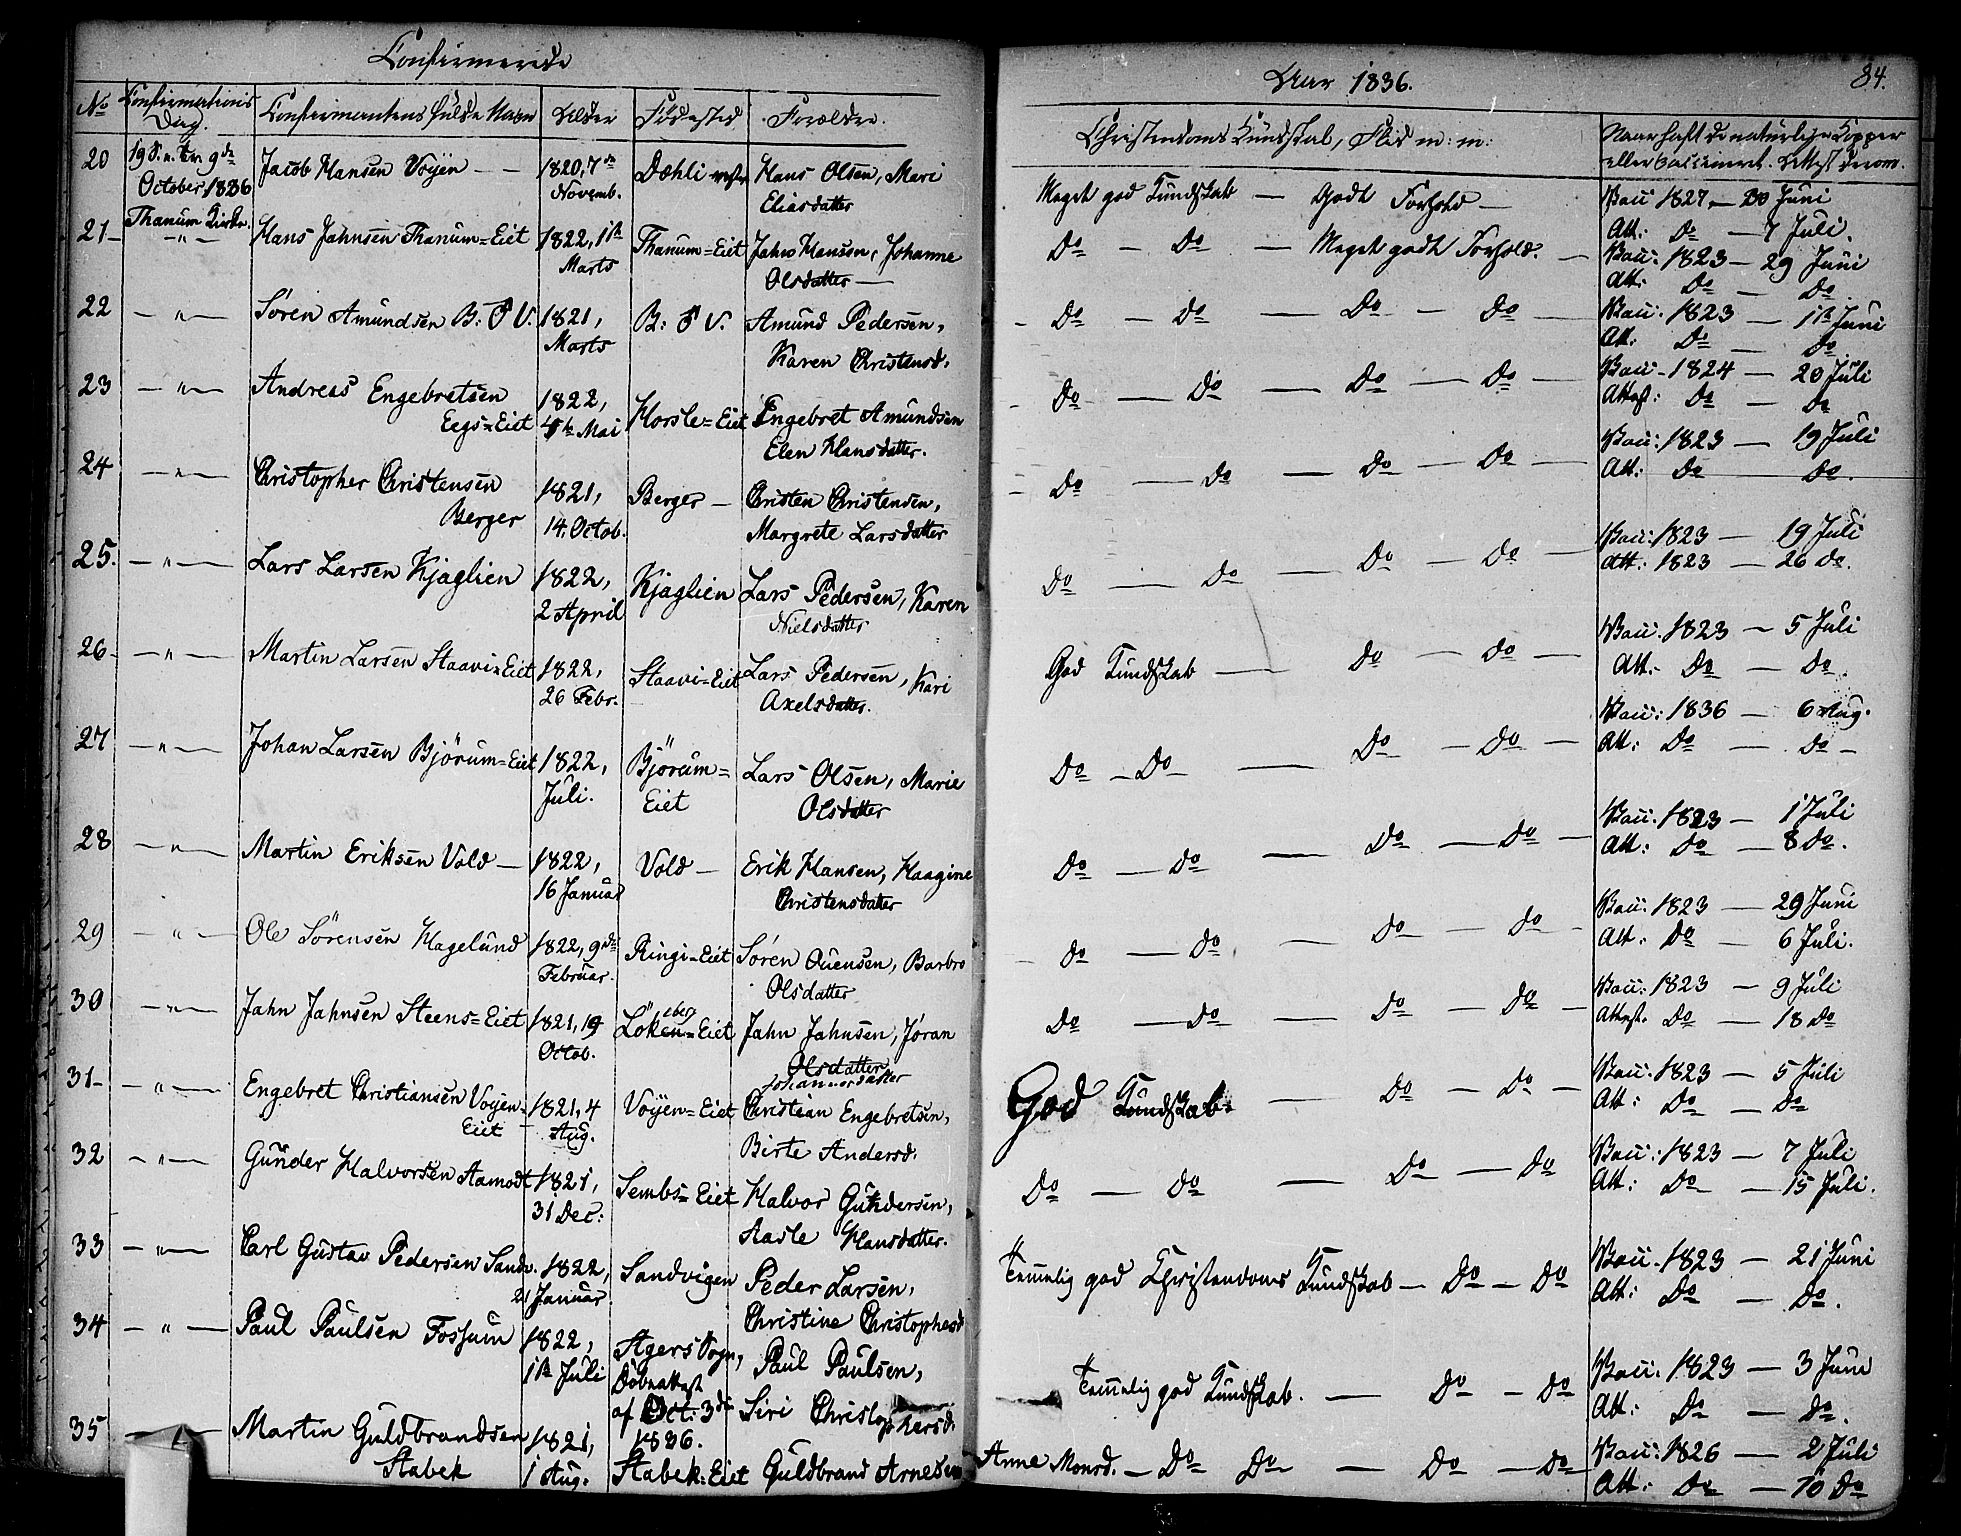 Confirmerede
No Confirmations Dag. Confirmantens fulde Navn Alder Fødested Forældre.
20 19 S. e. Trin 9de Jacob Hansen Vøyen 1820, 7de Dæhli vestre Hans Olsen, Mari
October 1836 Novemb. Eliasdatter
Thanum Kirke.
21 - " - Hans Jahnsen Thanum=Eiet 1822, 1ste Thanum=Eiet Jahn Hansen, Johanne
Marts Olsdatter
22 - " - Søren Amundsen B: O V. 1821, B: O V. Amund Pedersen,
Marts Karen Christensd.
23 - " - Andreas Engebretsen 1822, Horsle=Eiet Engebret Amundsen
Eegs=Eiet Mai Elen Hansdatter.
24 - " - Christopher Christensen 1821, Berger Christen Christensen,
Berger 14. Octob. Margrete Larsdatter
25. - " - Lars Larsen Kjaglien 1822, Kjaglien Lars Pedersen, Karen
2 April Nielsdatter
26 - " - Martin Larsen Staavi=Eiet 1822, Staavi=Eiet Lars Pedersen, Kari
26 Febr. Axelsdatter.
27 - " - Johan Larsen Bjørum=Eiet 1822, Bjørum= Lars Olsen, Marie
Juli. Eiet Olsdatter
28 - " - Martin Eriksen Vold 1822, Vold Erik Hansen, Haagine
16 Januar Christensdatter
29 - " - Ole Sørensen Hagelund 1822, 9de Ringi=Eiet Søren Ouensen, Barbro
Februar. Olsdatter
30 - " - Jahn Jahnsen Steens=Eiet 1821, 19 Løken=Eiet Jahn Jahnsen, Jøran
Octob. Olsdatter
Johannesdatter
31 - " - Engebret Christiansen Voyen= 1821, 4 Voyen=Eiet Christian Engebretsen,
Eiet Aug. Birte Andersd.
32 - " - Gunder Halvorsen Aamodt 1821, Sembs=Eiet Halvor Gundersen,
31 Dec: Aasle Hansdatter.
33 - " - Carl Gustav Pedersen Sandv. 1822, Sandvigen Peder Larsen,
21 Januar Christine Christophersd
34 - " - Paul Paulsen Fossum 1822, Agers Sogn, Paul Paulsen,
1ste Juli Døbeattest Siri Christophersd.
af Oct: 3de
1836.
35 - " - Martin Guldbrandsen 1821, Stabek=Eiet Guldbrand Arnesen
Stabek 1 Aug.
Aar 1836. 84.
Christendoms Kundskab, Flid m: m: Naar haft de naturlige Kopper
eller Vaccineret. Attest derom.
Meget god Kundskab — Godt Forhold — Vacc: 1827 — 30 Juni
Att: Do — 7 Juli.
Do — Do — Meget godt Forhold. — Vacc: 1823 — 29 Juni
Att: Do — Do
Do — Do — Do — Do — Vacc. 1823 — 1ste Juni
Att: Do — Do
Do — Do — Do — Do — Vacc. 1824 — 20 Juli
Attest: Do — Do
Do — Do — Do — Do — Vacc: 1823 — 19 Juli
Att: Do Do.
Do — Do — Do — Do — Vacc: 1823 — 19 Juli
Att: 1823 — 26 Do.
God Kundskab — Do — Do — Vacc. 1823 — 5 Juli
Att: Do — Do
Do — Do — Do — Do — Vacc: 1836 — 6 Aug.
Att: Do — Do
Do — Do — Do — Do — Vacc. 1823 — 1 Juli
Att: Do — 8 Do.
Do — Do — Do — Do — Vacc: 1823 — 29 Juni
Att: Do — 6 Juli.
Do — Do — Do — Do — Vacc: 1823 — 9 Juli
Attest. Do — 18 Do
God Kundskab. — Do — Do — Vacc: 1823 — 5 Juli
Att: Do — Do
Do — Do — Do — Do Vacc: 1823 — 7 Juli
Att: Do — 15 Juli.
Temmelig god Christendoms Kundskab — Do — Do Vacc. 1823 — 21 Juni
Att: Do — Do.
Temmelig god Kundskab. — Do — Do Vacc: 1823 — 3 Juni
Att: Do — Do.
Anne Monsd. — Do Do — Do — Do Vacc: 1826 — 2 Juli
Att: Do — 10 Do